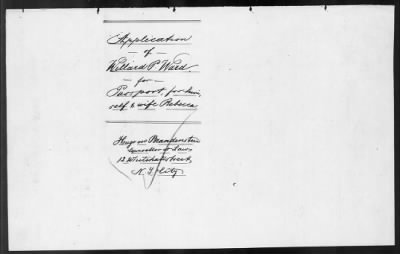 Application
of
Willard P. Ward.
for
Passport, for him,
self & wife Rebecca
Hugo von Brandenstein
Counsellor at Law
12 Whitehall Street,
N. Y. City